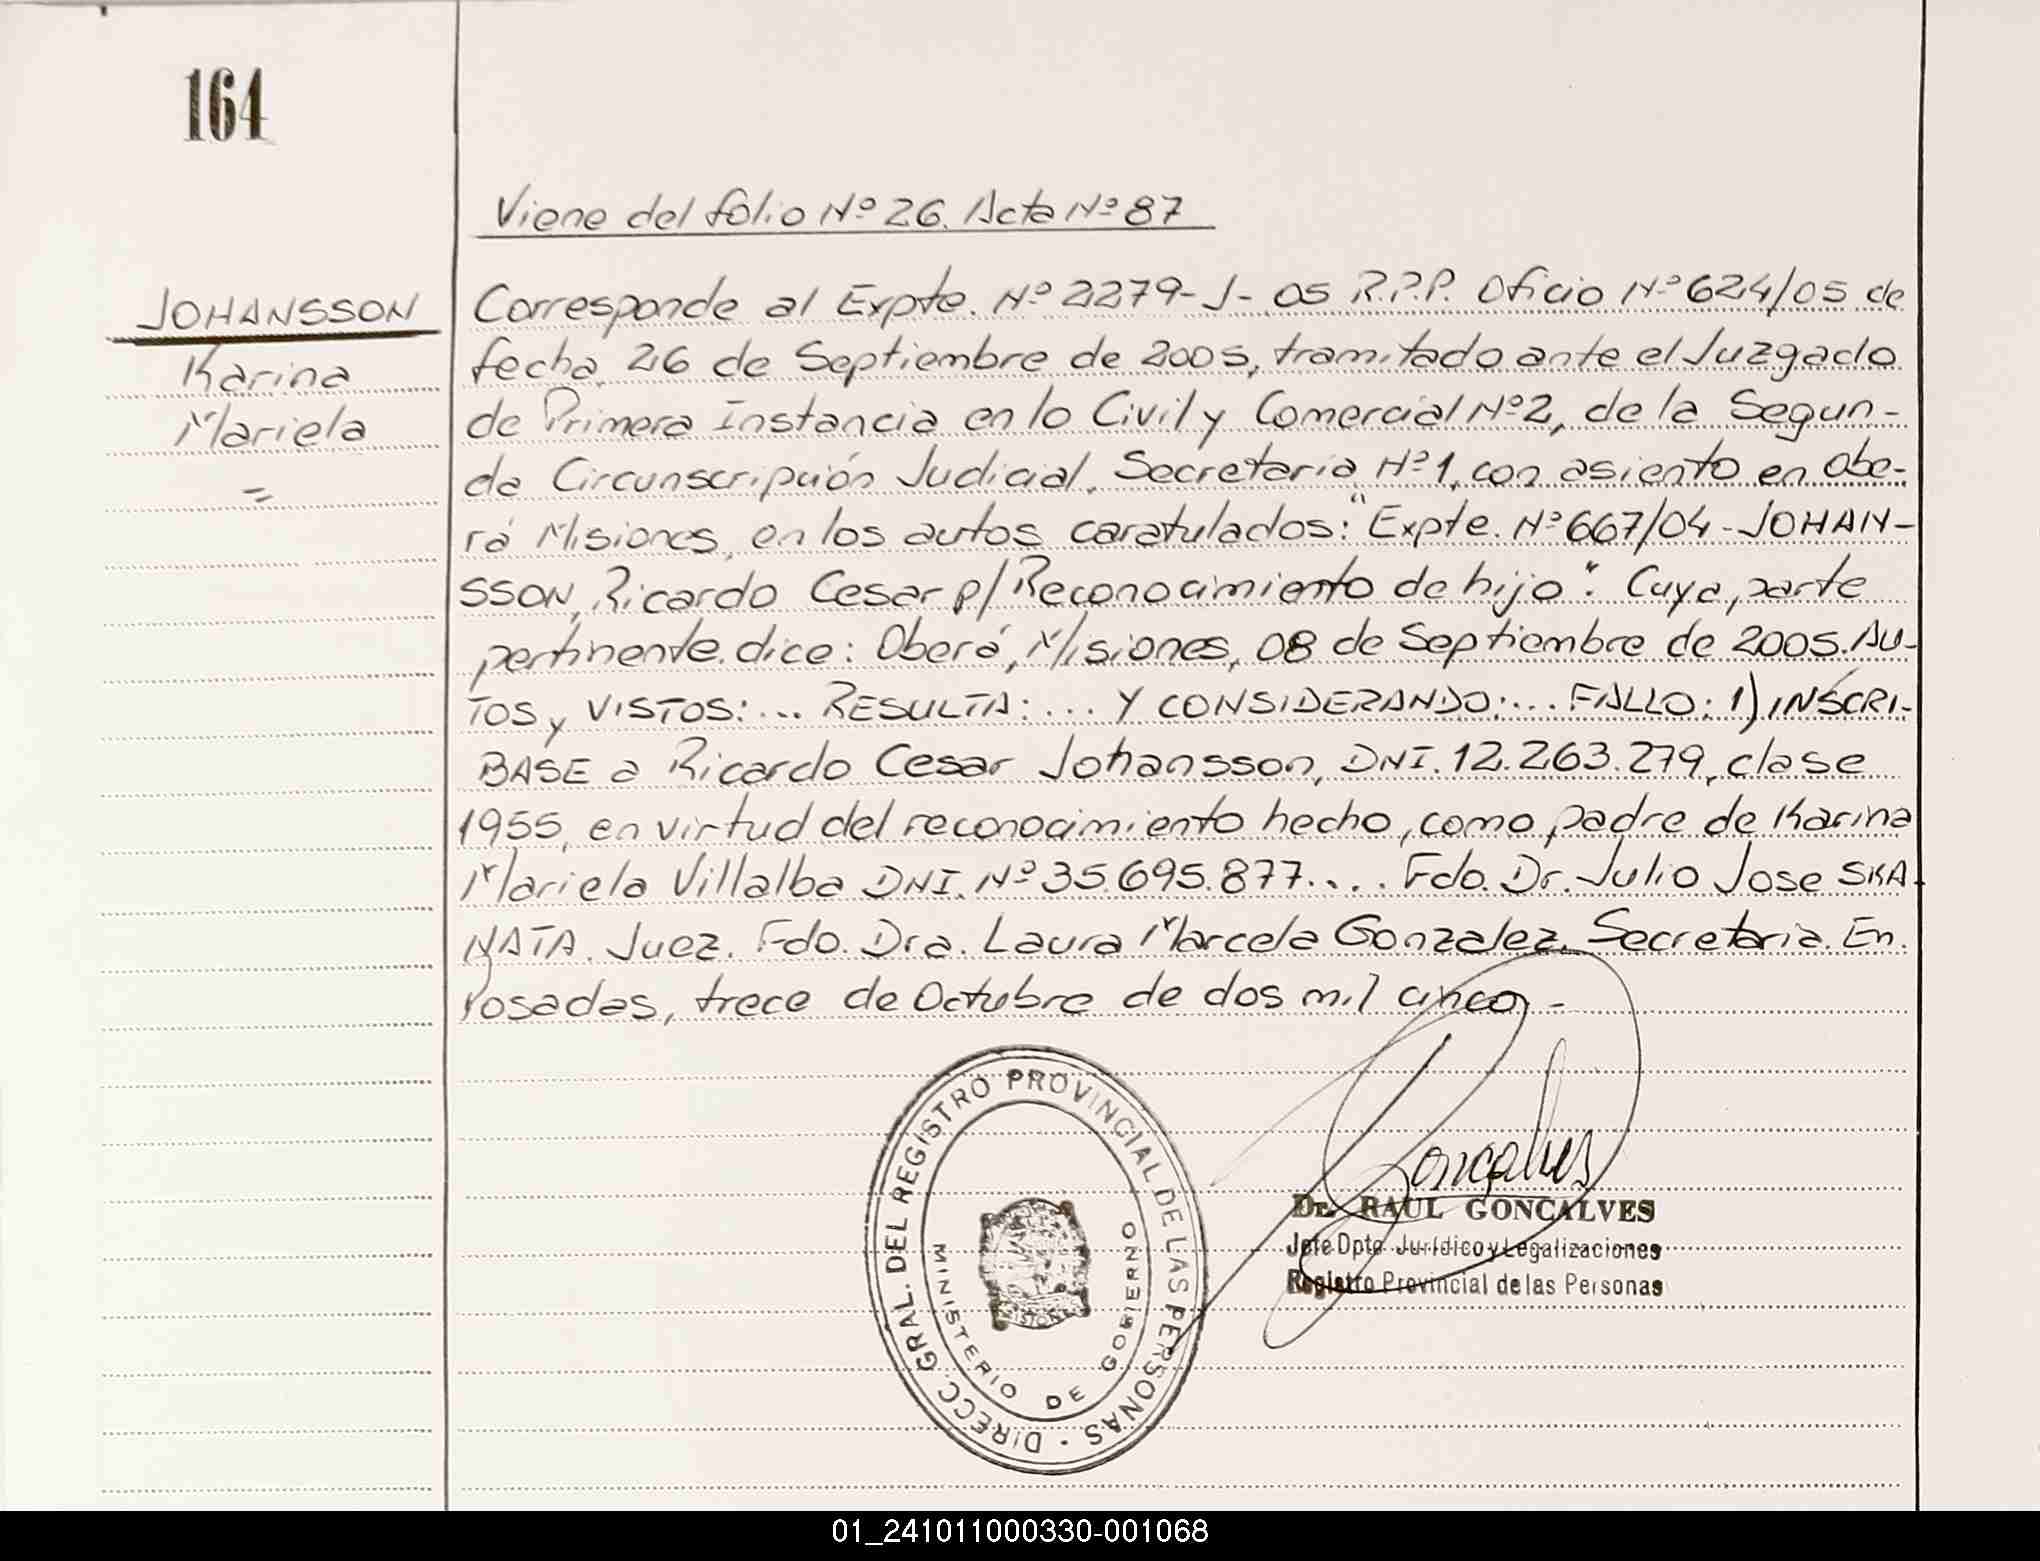 164
Viene del folio Nº 26. Acta Nº 87
JOHANSSON
Karina
Mariela
=
Corresponde al Expte. Nº 2279-J-05 R.P.P. Oficio Nº 624/05 de
fecha 26 de Septiembre de 2005, tramitado ante el Juzgado
de Primera Instancia en lo Civil y Comercial Nº 2, de la Segun-
da Circunscripción Judicial, Secretaria Nº 1, con asiento en Obe-
rá Misiones, en los autos caratulados: "Expte. Nº 667/04 - JOHAN-
SSON, Ricardo Cesar p/ Reconocimiento de hijo". Cuya parte
pertinente dice: Oberá, Misiones, 08 de Septiembre de 2005. AU-
TOS y VISTOS:... RESULTA:... Y CONSIDERANDO:... FALLO: 1) INSCRI-
BASE a Ricardo Cesar Johansson, DNI. 12.263.279, clase
1955, en virtud del reconocimiento hecho, como padre de Karina
Mariela Villalba DNI. Nº 35.695.877.... Fdo. Dr. Julio Jose SKA-
NATA. Juez. Fdo. Dra. Laura Marcela Gonzalez. Secretaria. En
Posadas, trece de Octubre de dos mil cinco -
DIRECC. GRAL. DEL REGISTRO PROVINCIAL DE LAS PERSONAS ·
MINISTERIO DE GOBIERNO
MISIONES
Goncalves
Dr. RAUL GONCALVES
Jefe Dpto Jurídico y Legalizaciones
Registro Provincial de las Personas
01_241011000330-001068